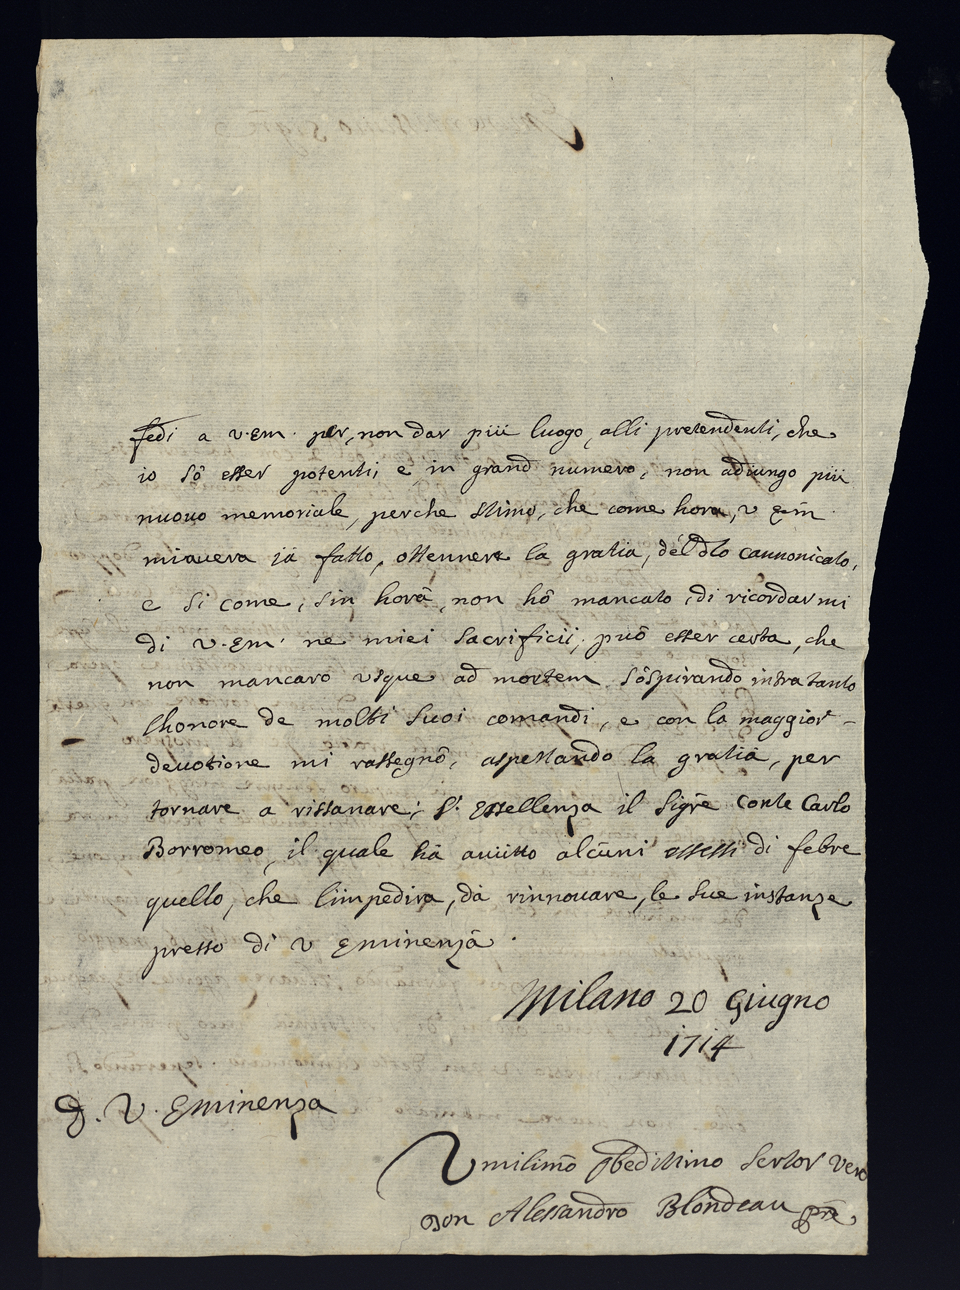 fedi a v. em. per, non dar più luogo, alli pretendenti, che
io sò esser potenti, e in grand numero, non adiungo più
nuovo memoriale, perche stimo, che come hora, v Em̄.
miavera jà fatto, ottenner la gratia, dél dto cannonicato,
e si come, sin horâ, non hô mancato, di ricordarmi
di v. Em. ne miei sacrificii, può esser certa, che
non mancaro usque ad mortem sôspirando intratanto
lhonore de molti suoi comandi, e con la maggior -
devotione mi rassegnô, aspettando la gratia, per
tornare a rissanare; S. Essellenza il Sigrē Conte Carlo
Borromeo, il quale hà auuto alcuni assessi di febre
quello, che límpedira, dà rinnovare, le sue instanze
presso di v Eminenzâ.
Milano 20 Giugno
1714
D. V. Eminenza
Vmilimō obedissimo Servor vero
Don Alessandro Blondeau prē,